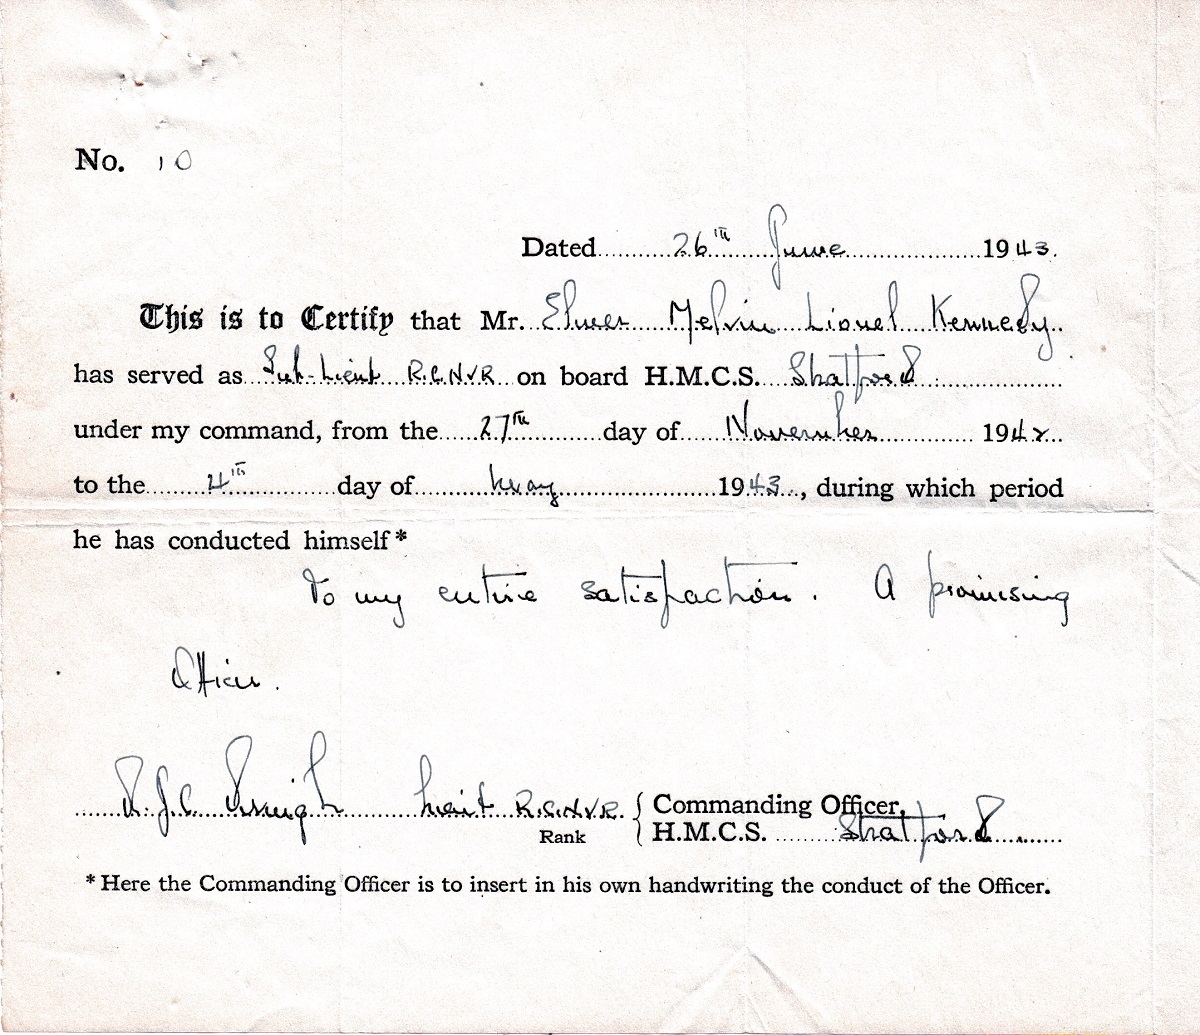 No. 10
Dated 26th June 1943.
This is to Certify that Mr. Elmer Melvin Lionel Kennedy
has served as Sub-Lieut R.C.N.V.R on board H.M.C.S. Stratford
under my command, from the 27th day of November 1942
to the 4th day of May 1943, during which period
he has conducted himself*
to my entire satisfaction. A promising
Officer.
R.J.C. Pringle Lieut R.C.N.V.R. { Commanding Officer,
Rank H.M.C.S. Stratford
*Here the Commanding Officer is to insert in his own handwriting the conduct of the Officer.